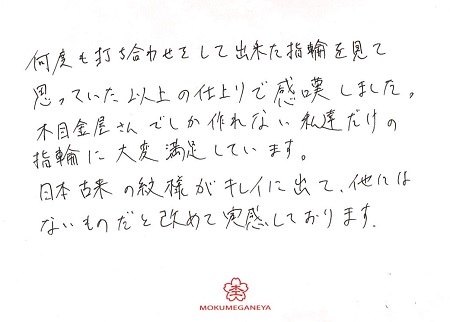 何度も打ち合わせをして出来た指輪を見て
思っていた以上の仕上りで感嘆しました。
木目金屋さんでしか作れない私達だけの
指輪に大変満足しています。
日本古来の紋様がキレイに出て、他には
ないものだと改めて実感しております.
MOKUMEGANEYA